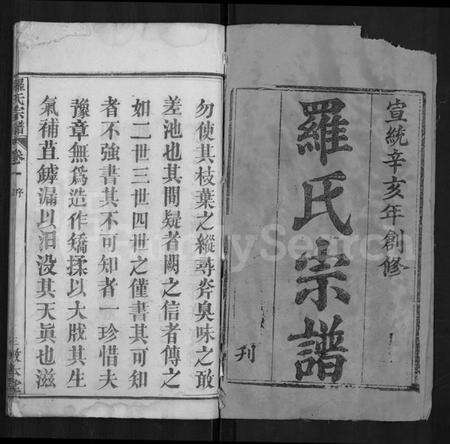 宣統辛亥年創修
羅氏宗譜
刊
勿使其枝葉之縱尋斧臭味之敢
差池也其間疑者闕之信者傳之
如二世三世四世之僅書其可知
者不強書其不可知者一珍惜夫
豫章無爲造作矯揉以大戕其生
氣補苴罅漏以汨没其天眞也滋
羅氏宗譜
卷一 序
MySearch